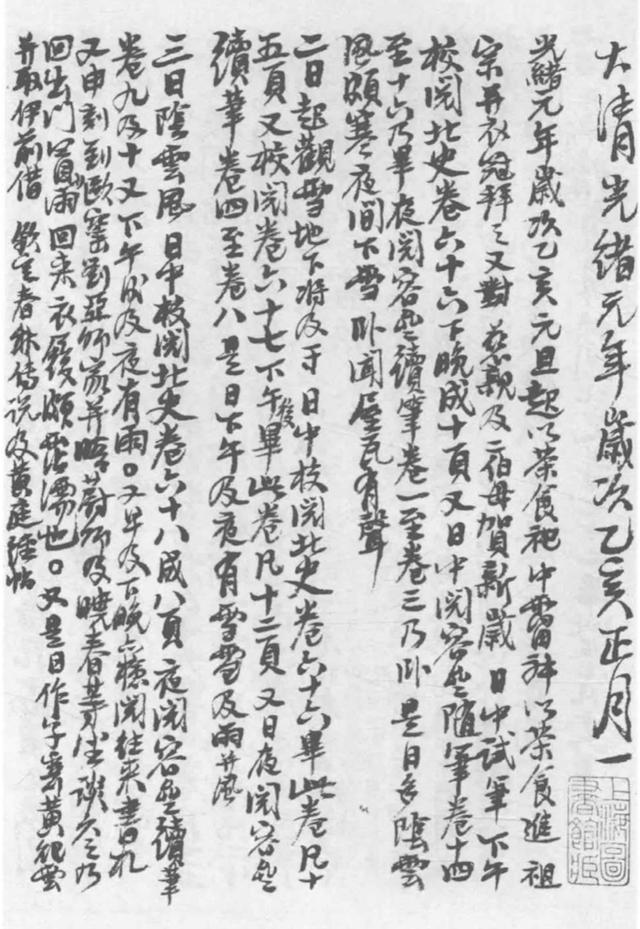 大清光緒元年歲次乙亥正月一
光緒元年歲次乙亥元旦起以茶食祀中霤神以茶食進祖
宗并衣冠拜之又對慈親及二伯母賀新歲日中試筆下午
校閱北史卷六十六下晚成十頁又日中閱容齋隨筆卷十四
至十六乃畢夜閱容齋續筆卷一至卷三乃臥是日多陰雲
風頗寒夜間下雪臥聞屋瓦有聲
二日起觀雪地下將及寸日中校閱北史卷六十六畢此卷凡十
五頁又校閱卷六十七下午後畢此卷凡十二頁又日夜閱容齋
續筆卷四至卷八是日下午及夜有雪雪及雨并風
三日陰雲風日中校閱北史卷六十八成八頁夜閱容齋續筆
卷九及十又下午後及夜有雨又早及下晚檢閱往來書札
又申刻到歐窯劉亞師家并晤蔚師及曉春等坐談久之乃
回出門冒雨回來衣履頗霑濡也又是日作字寄黃
并取伊前借欽定春秋傳說及黃庭經帖
上海圖書館藏